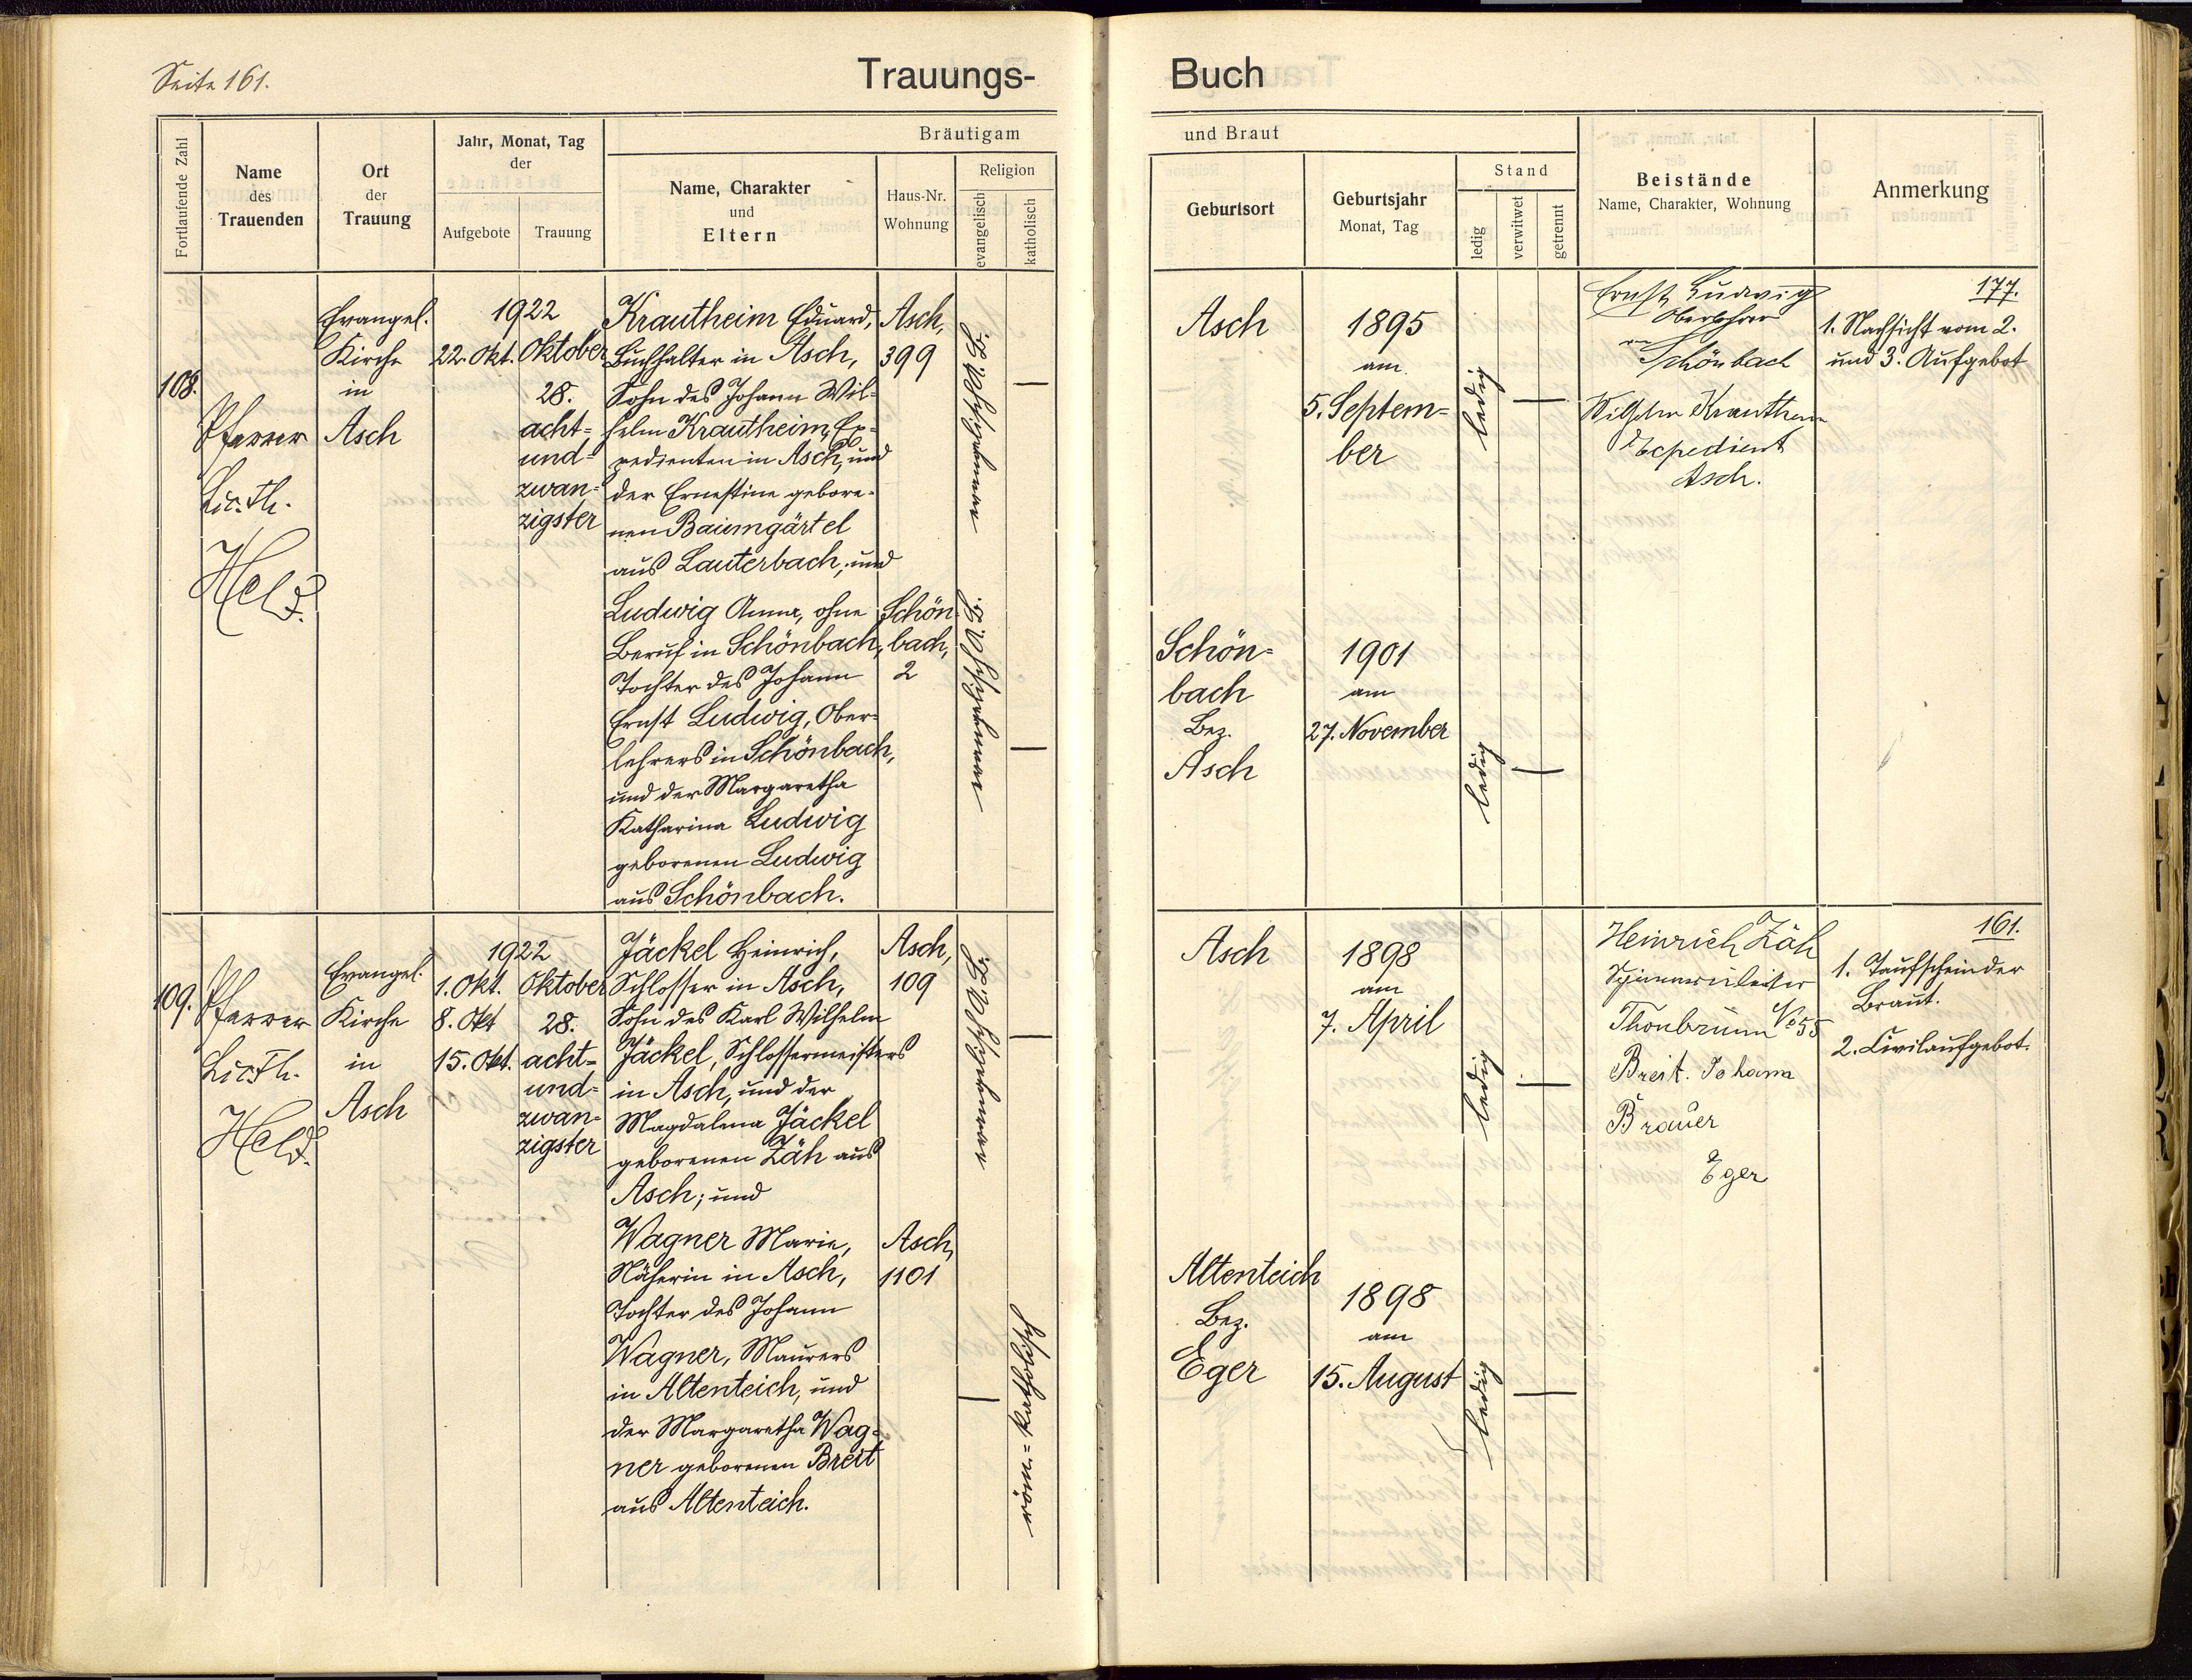 Seite 161.
Trauungs-
Buch
Fortlaufende Zahl
Name
des
Trauenden
Ort
der
Trauung
Jahr, Monat, Tag
der
Aufgebote
Trauung
Bräutigam
Name, Charakter
und
Eltern
Haus-Nr.
Wohnung
Religion
evangelisch
katholisch
und Braut
Geburtsort
Geburtsjahr
Monat, Tag
Stand
ledig
verwitwet
getrennt
Beistände
Name, Charakter, Wohnung
Anmerkung
108.
Pfarrer
Lic. Th.
Held.
Evangel.
Kirche
in
Asch
1922
22. Okt.
Oktober
28.
acht-
und-
zwan-
zigster
Krautheim Eduard,
Buchhalter in Asch,
Sohn des Johann Wil-
helm Krautheim, Ex-
pedienten in Asch, und
der Ernestine gebore-
nen Baumgärtel
aus Lauterbach; und
Asch,
399
Ludwig Anna, ohne
Beruf in Schönbach,
Tochter des Johann
Ernst Ludwig, Ober-
lehrers in Schönbach,
und der Margaretha
Katharina Ludwig
geborenen Ludwig
aus Schönbach.
Schön-
bach,
2
Asch
1895
am
5. Septem-
ber
ledig
Ernst Ludwig
Oberlehrer
Schönbach
Wilhelm Krautheim
Expedient
Asch.
177.
1. Nachsicht vom 2.
und 3. Aufgebot
Schön-
bach
Bez.
Asch
1901
am
27. November
ledig
109.
Pfarrer
Lic. Th.
Held.
Evangel.
Kirche
in
Asch
1922
1. Okt.
8. Okt
15. Okt.
Oktober
28.
acht-
und-
zwan-
zigster
Jäckel Heinrich,
Schlosser in Asch,
Sohn des Karl Wilhelm
Jäckel, Schlossermeisters
in Asch, und der
Magdalena Jäckel
geborenen Zäh aus
Asch; und
Asch,
109
Wagner Marie,
Näherin in Asch,
Tochter des Johann
Wagner, Maurers
in Altenteich, und
der Margaretha Wag-
ner geborenen Breit
aus Altenteich.
Asch,
1101
röm.-katholisch
Asch
1898
am
7. April
ledig
Heinrich Zäh
Thonbrunn No 55
Breit. Johann
Brauer
Eger
161.
1. Taufschein der
Braut.
2. Civilaufgebot.
Altenteich
Bez.
Eger
1898
am
15. August
ledig